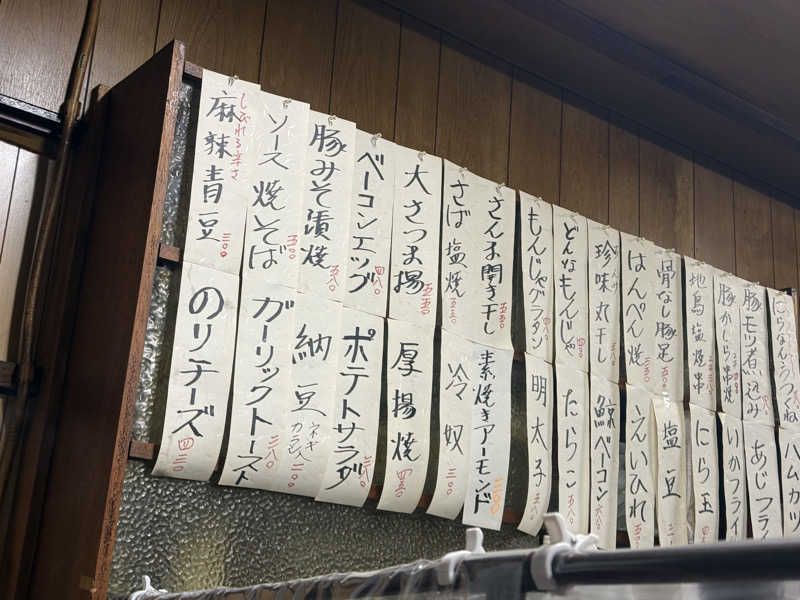 しびれる辛さ
麻辣青豆 三〇〇
ソース焼そば 五〇〇
豚みそ漬焼 五八〇
ベーコンエッグ 四八〇
大さつま揚 五五〇
さば塩焼 五三〇
さんま開き干し 五五〇
もんじゃグラタン
どんなもんじゃ
珍味丸干し
はんぺん焼 三五〇
骨なし豚足
地鳥塩焼
豚かしら串焼
豚モツ煮込み
にらなんこつつくね
のりチーズ 四三〇
ガーリックトースト 二八〇
納豆 ネギ カラシ入 二〇〇
ポテトサラダ
厚揚焼 四五〇
冷奴 三三〇
素焼きアーモンド 三〇〇
明太子
たらこ
鯨ベーコン
えいひれ
塩豆
にら玉
いかフライ
あじフライ
ハムカツ